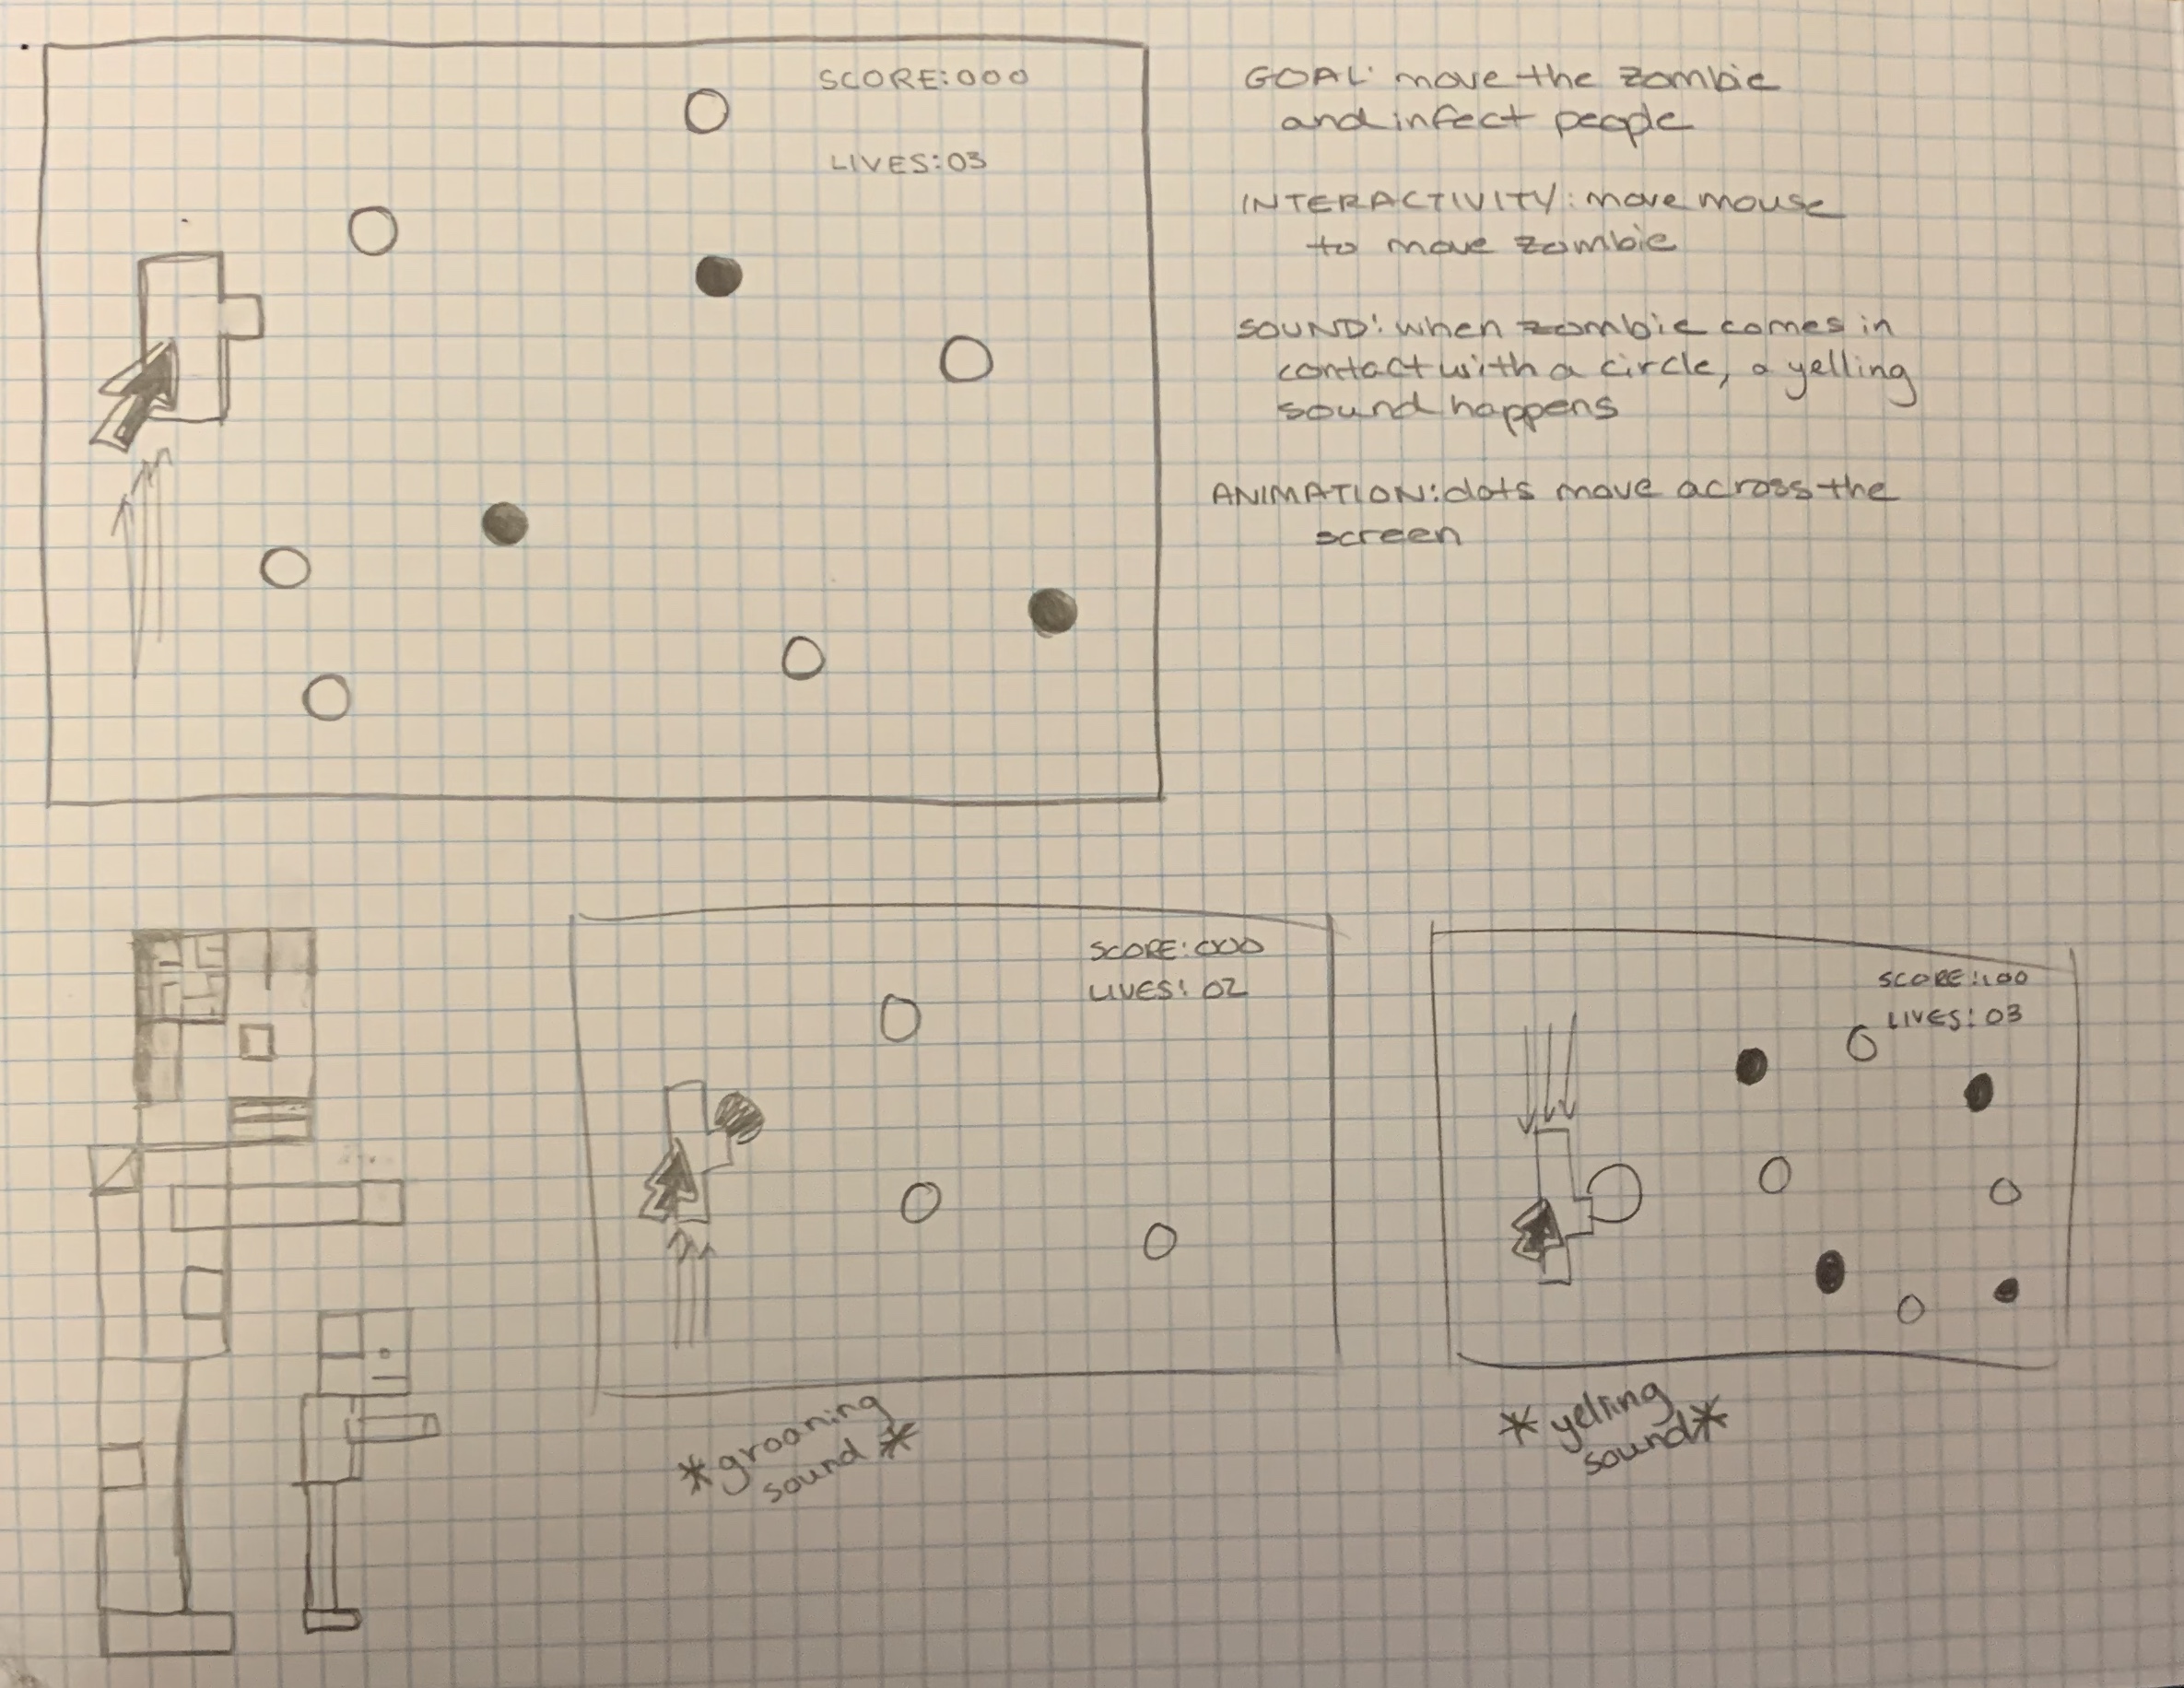 SCORE:000
LIVES:03
GOAL: move the zombie
and infect people
INTERACTIVITY: move mouse
to move zombie
SOUND: when zombie comes in
contact with a circle, a yelling
sound happens
ANIMATION: dots move across the
screen
SCORE:000
LIVES: 02
*groaning
sound*
SCORE:100
LIVES: 03
*yelling
sound*